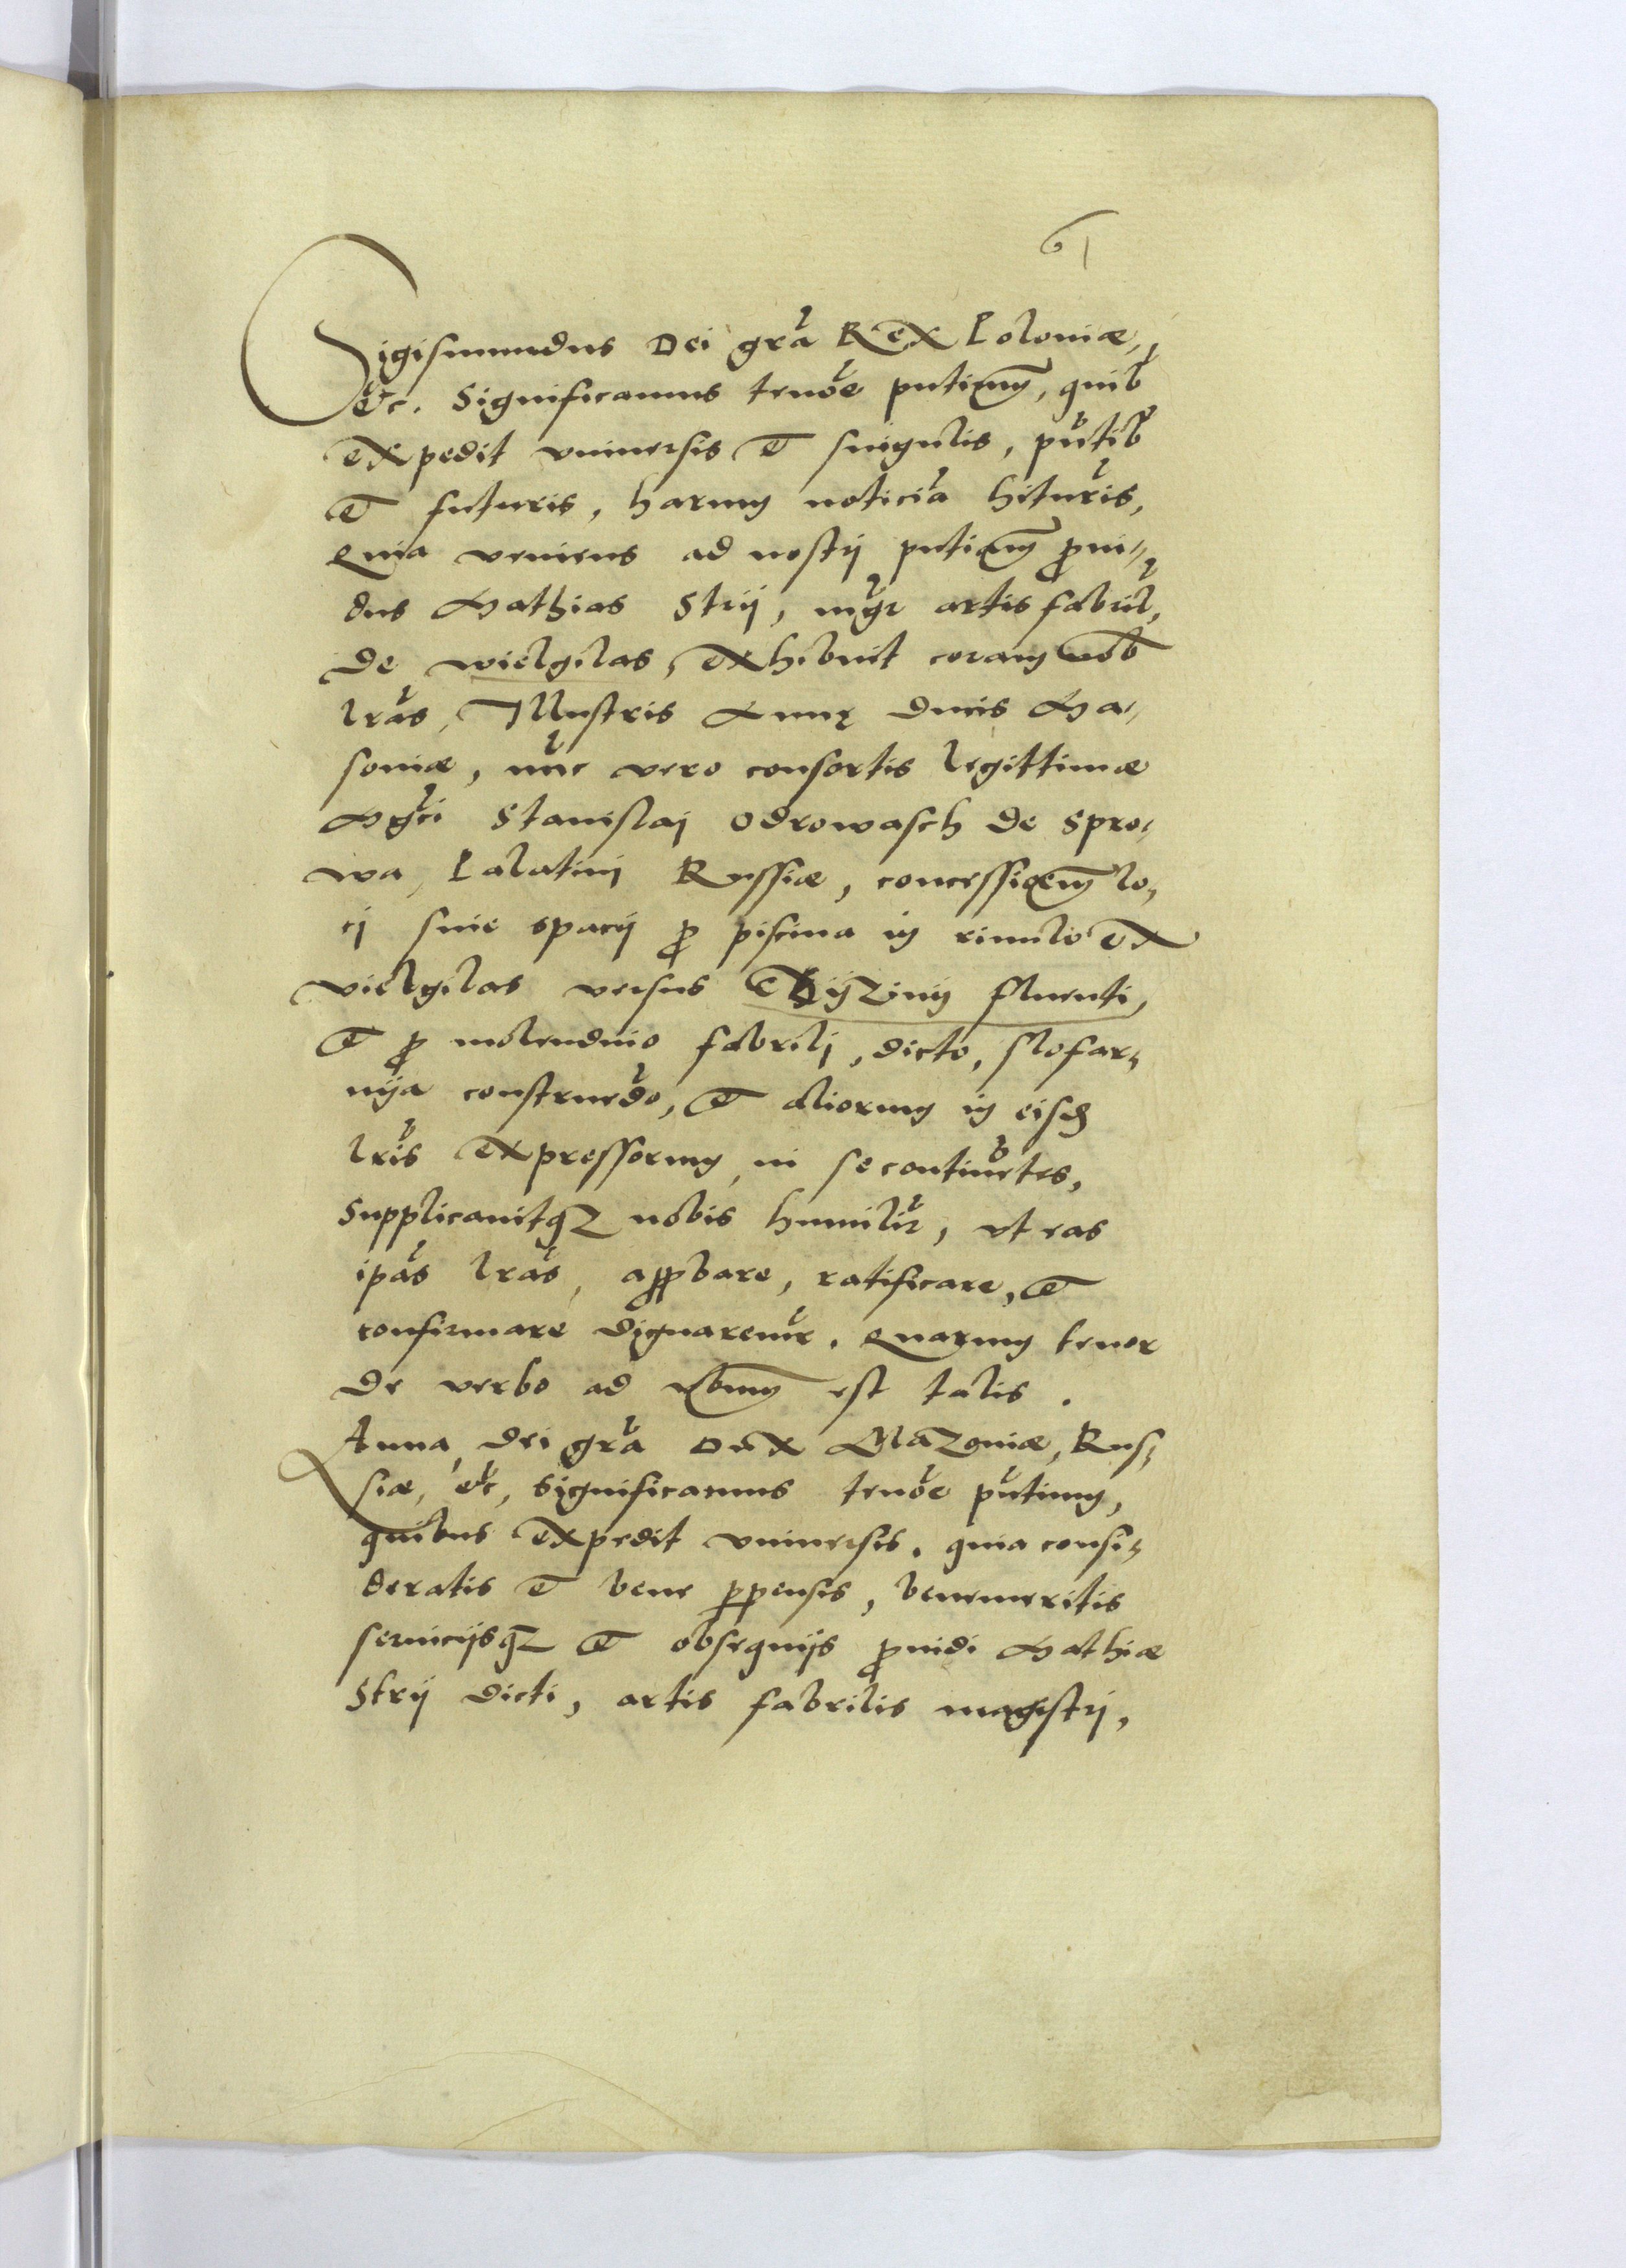 61
Sigismundus Dei gra Rex Poloniæ,
etc. Significamus tenore pntium, quib
expedit vniuersis et singulis, pntib
et futuris, harum noticia hituris,
Quia veniens ad nostrj pntiam proui-
dus Mathias Strij, mgr artis fabril,
de wielgilas, exhibuit coram nob
lras, Illustris Annę Ducis Ma-
soniæ, nunc vero consortis legittimæ
Mgci Stanislaj Odrowasch de Spro-
wa, Palatinj Russiæ, concessionem lo-
cj siue spacij pro piscina in riuulo ex
vielgilas versus fluenti,
et pro molendino fabrilj, dicto, slosar-
nija construendo, et aliorum in eisd
lris expressorum, in se continetes,
Supplicauitqz nobis humilir, vt eas
ipas lras, approbare, ratificare, et
confirmare dignaremur. Quarum tenor
de verbo ad vbum est talis.
Anna, dei gra Dux Mazoniæ, Rus-
siæ, etc, Significamus tenore pntium,
quibus expedit vniuersis, quia consi-
deratis et bene ppensis, benemeritis
seruicijsqz et obsequijs prouidi Mathiæ
Strij dicti, artis fabrilis magistrj,